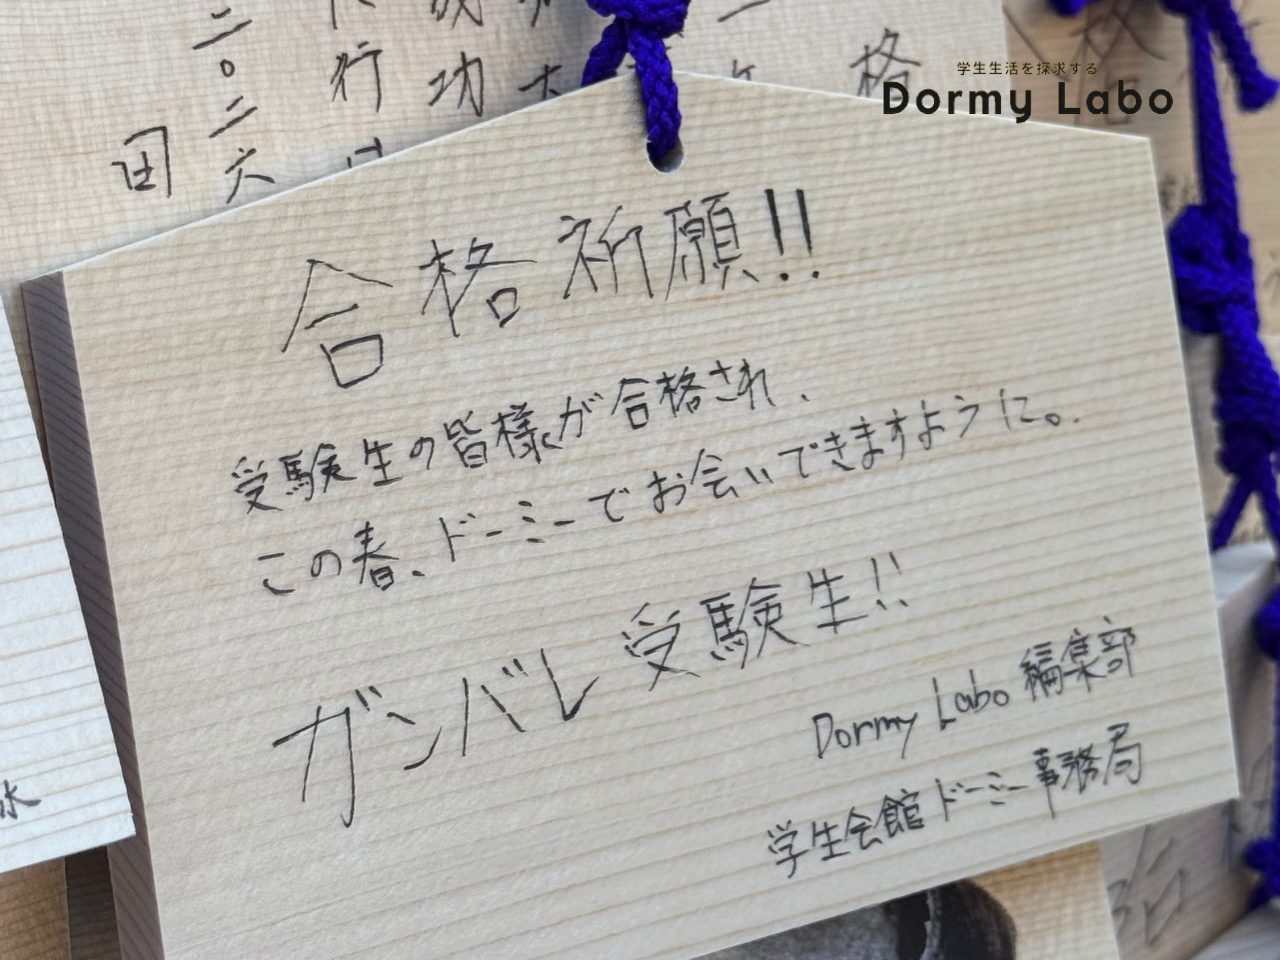 学生生活を探求する
Dormy Labo
合格祈願!!
受験生の皆様が合格され、
この春、ドーミーでお会いできますように。
ガンバレ受験生!!
Dormy Labo 編集部
学生会館ドーミー事務局
格
功
行
二〇二六
田
水